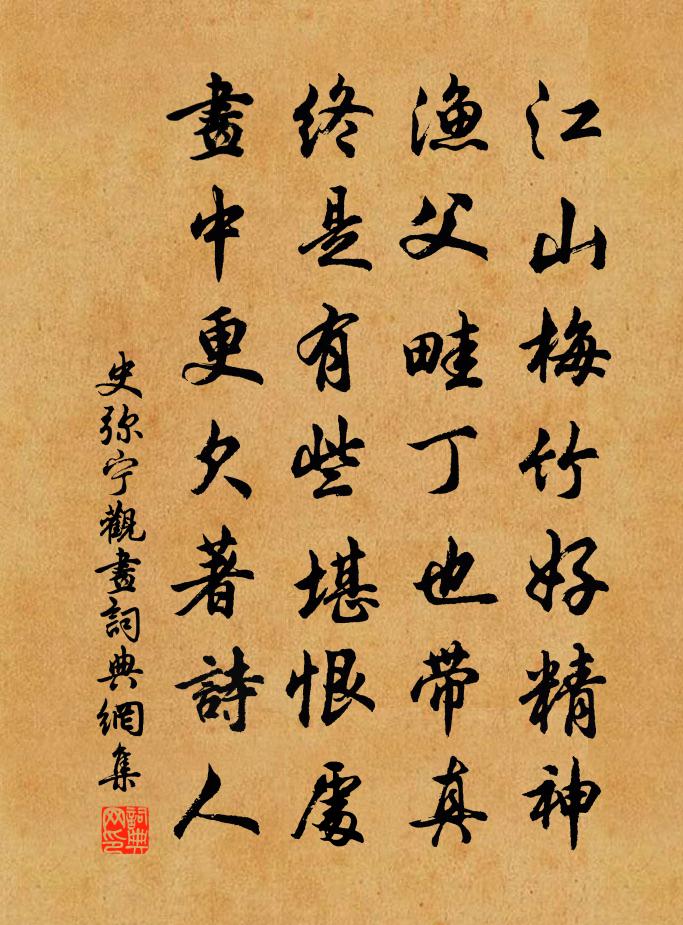 江山梅竹好精神
漁父畦丁也带真
終是有些堪恨處
畫中更欠著詩人
史弥宁觀畫詞典網集
詞典网印